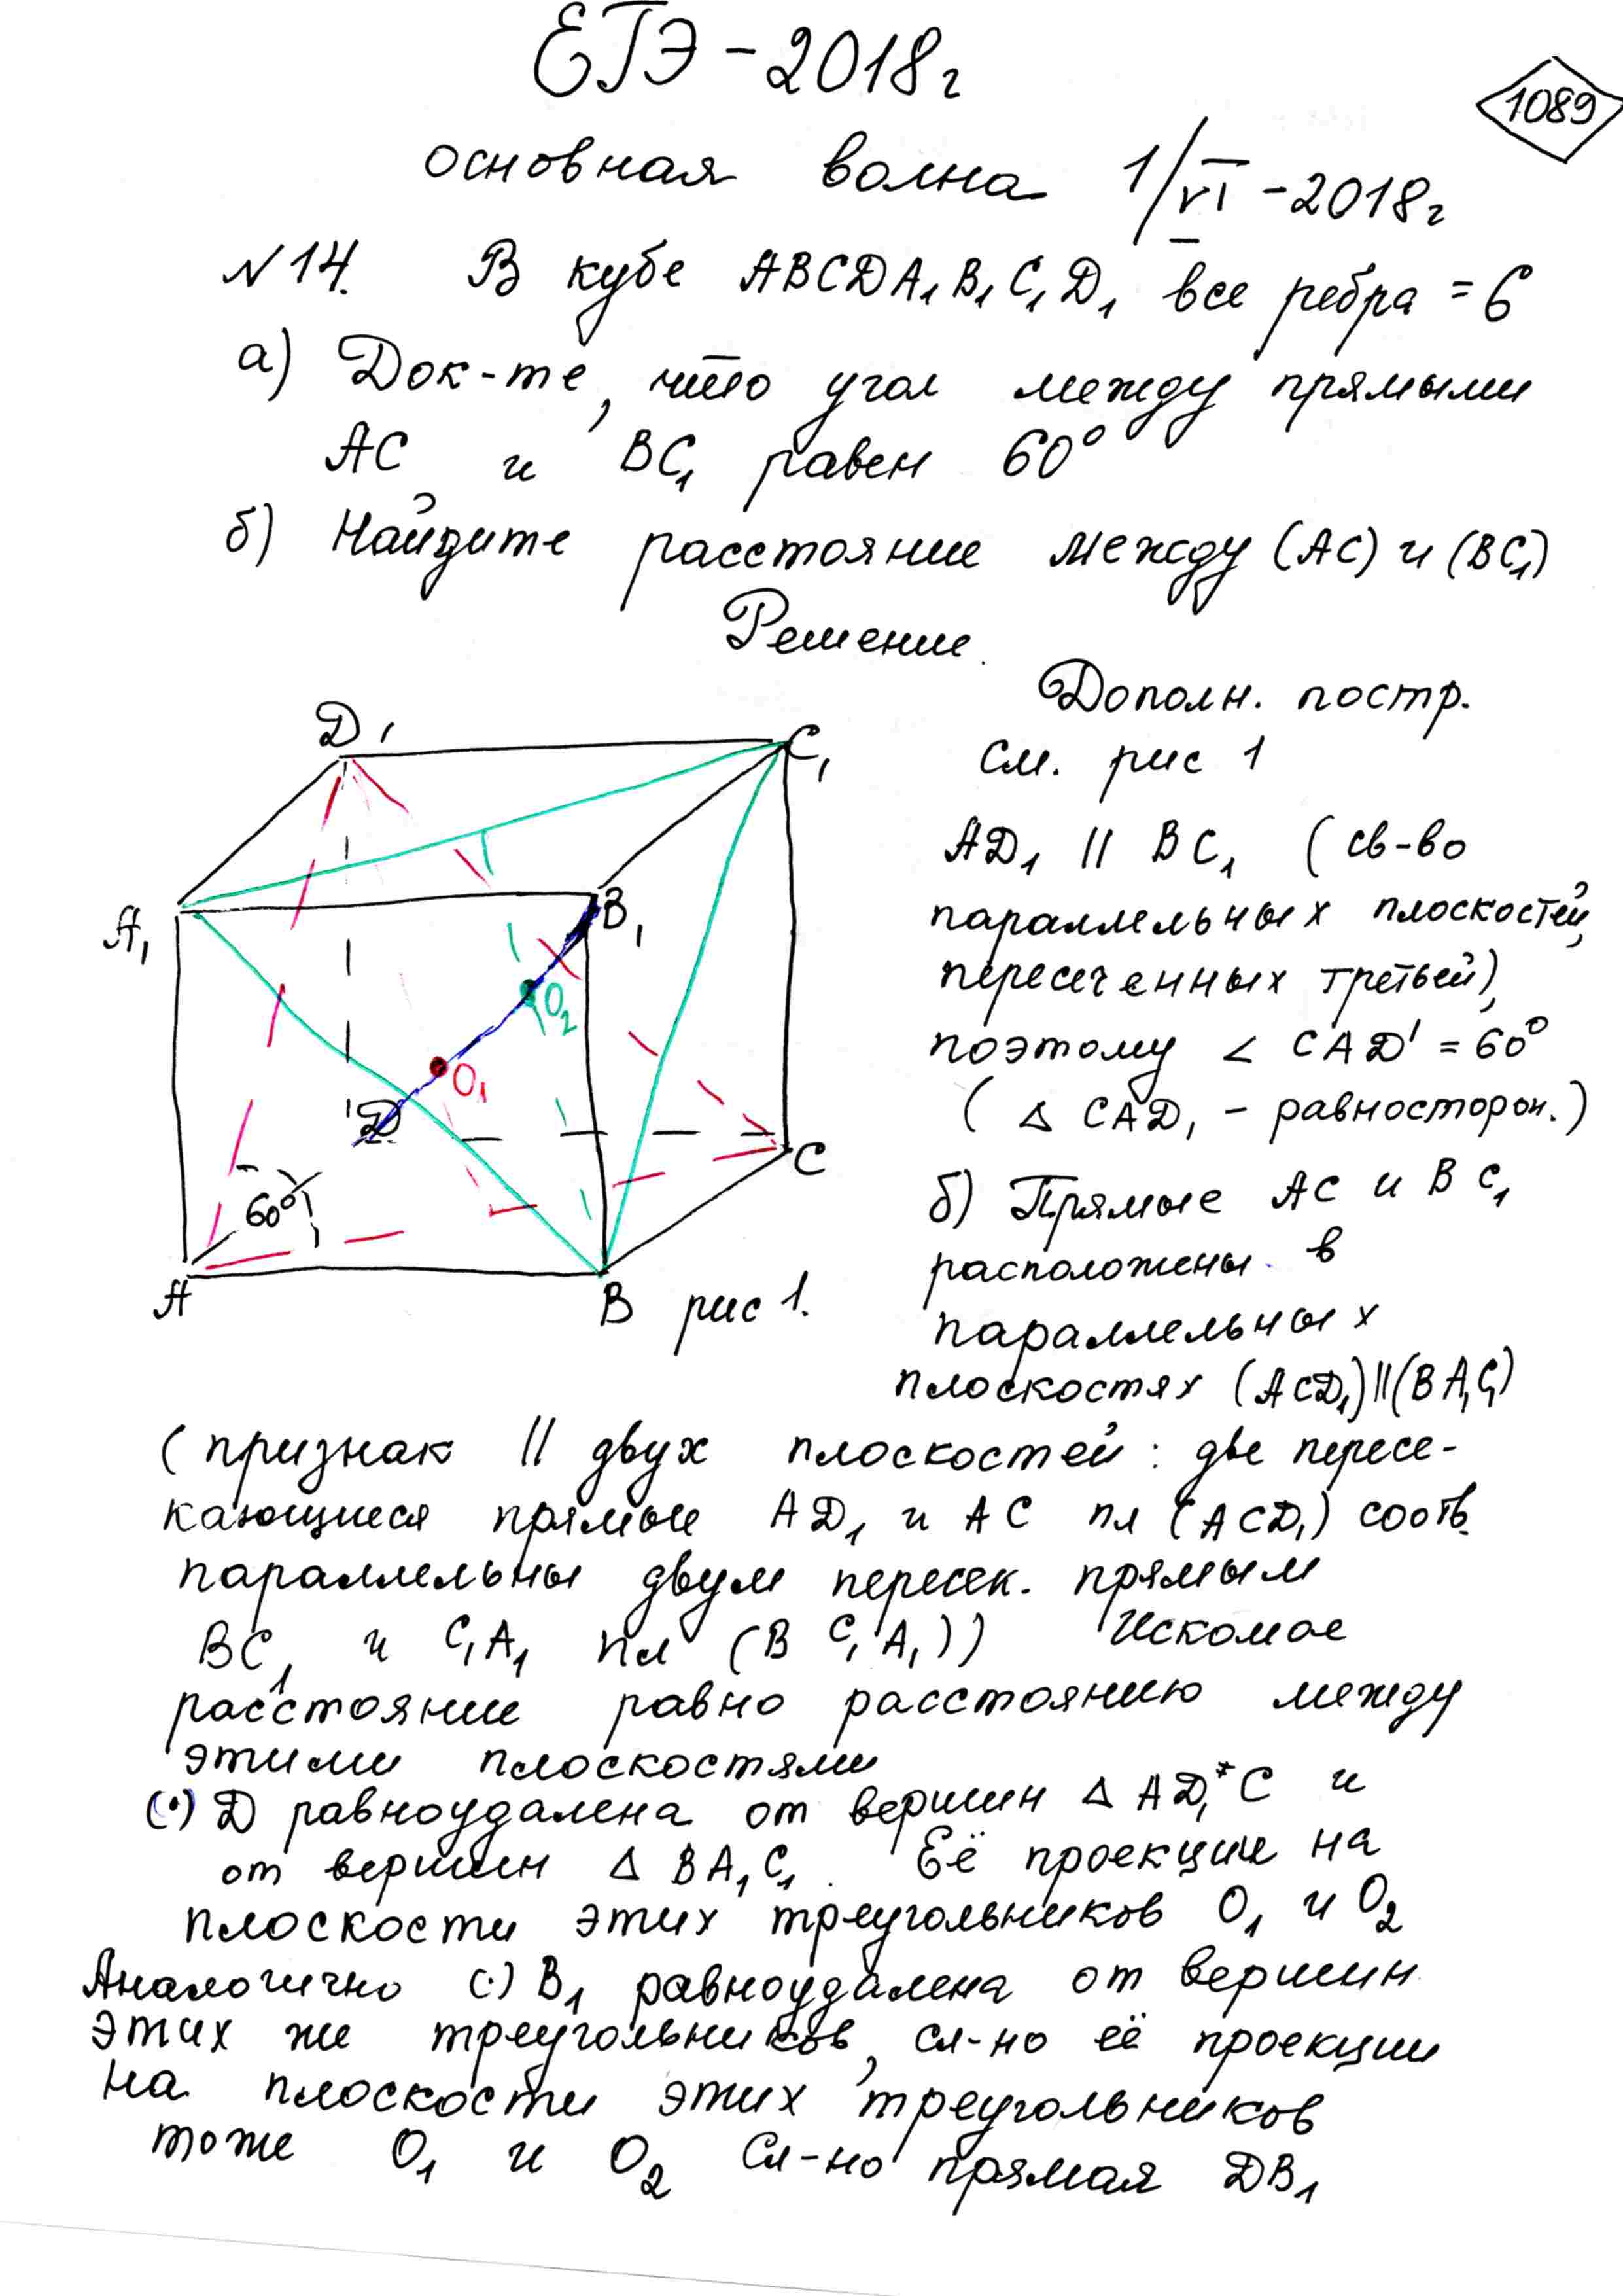 ЕГЭ - 2018г
1089
основная волна 1/VI - 2018г
N 14. В кубе ABCDA₁B₁C₁D₁ все ребра = 6
а) Док-те, что угол между прямыми
AC и BC₁ равен 60°
б) Найдите расстояние между (AC) и (BC₁)
Решение.
Дополн. постр.
См. рис 1
AD₁ || BC₁ (св-во
параллельных плоскостей,
пересеченных третьей),
поэтому ∠ CAD' = 60°
(△ CAD₁ - равносторон.)
D₁
C₁
A₁
B₁
O₂
O₁
D
C
60°
A
B
рис 1.
б) Прямые AC и BC₁
расположены в
параллельных
плоскостях (ACD₁)||(BA₁C₁)
(признак || двух плоскостей: две пересе-
кающиеся прямые AD₁ и AC пл (ACD₁) соотв.
параллельны двум пересек. прямым
BC₁ и C₁A₁ пл (B C₁A₁)) Искомое
расстояние равно расстоянию между
этими плоскостями
(•) D равноудалена от вершин △ AD₁*C и
от вершин △ BA₁C₁. Её проекции на
плоскости этих треугольников O₁ и O₂
Аналогично (·) B₁ равноудалена от вершин
этих же треугольников, сл-но её проекции
на плоскости этих треугольников
тоже O₁ и O₂ Сл-но прямая DB₁